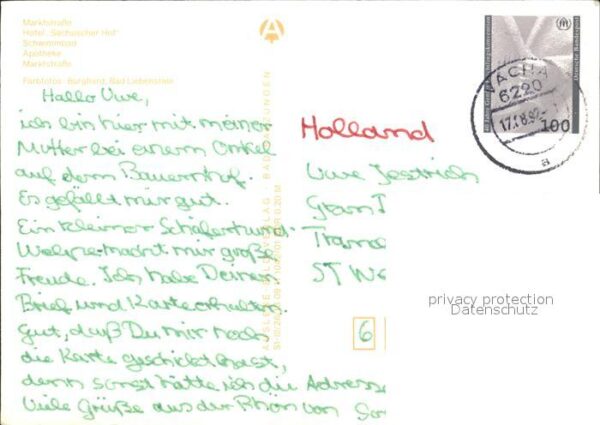 Marktstraße
Hotel "Sächsischer Hof"
Schwimmbad
Apotheke
Marktstraße
Farbfotos: Burghard, Bad Liebenstein
Hallo Uwe,
ich bin hier mit meiner
Mutter bei einem Onkel
auf dem Bauernhof.
Es gefällt mir gut.
Ein kleiner Schäferhund
Welpe macht mir große
Freude. Ich habe Deinen
Brief und Karte erhalten.
Gut, daß Du mir noch
die Karte geschickt hast,
denn sonst hätte ich die Adresse
Viele Grüße aus der Rhön von
A
Deutsche Bundespost
100
VACHA
6220
a
Holland
Uwe Jestrich
Gran
ST We
6
privacy protection
Datenschutz